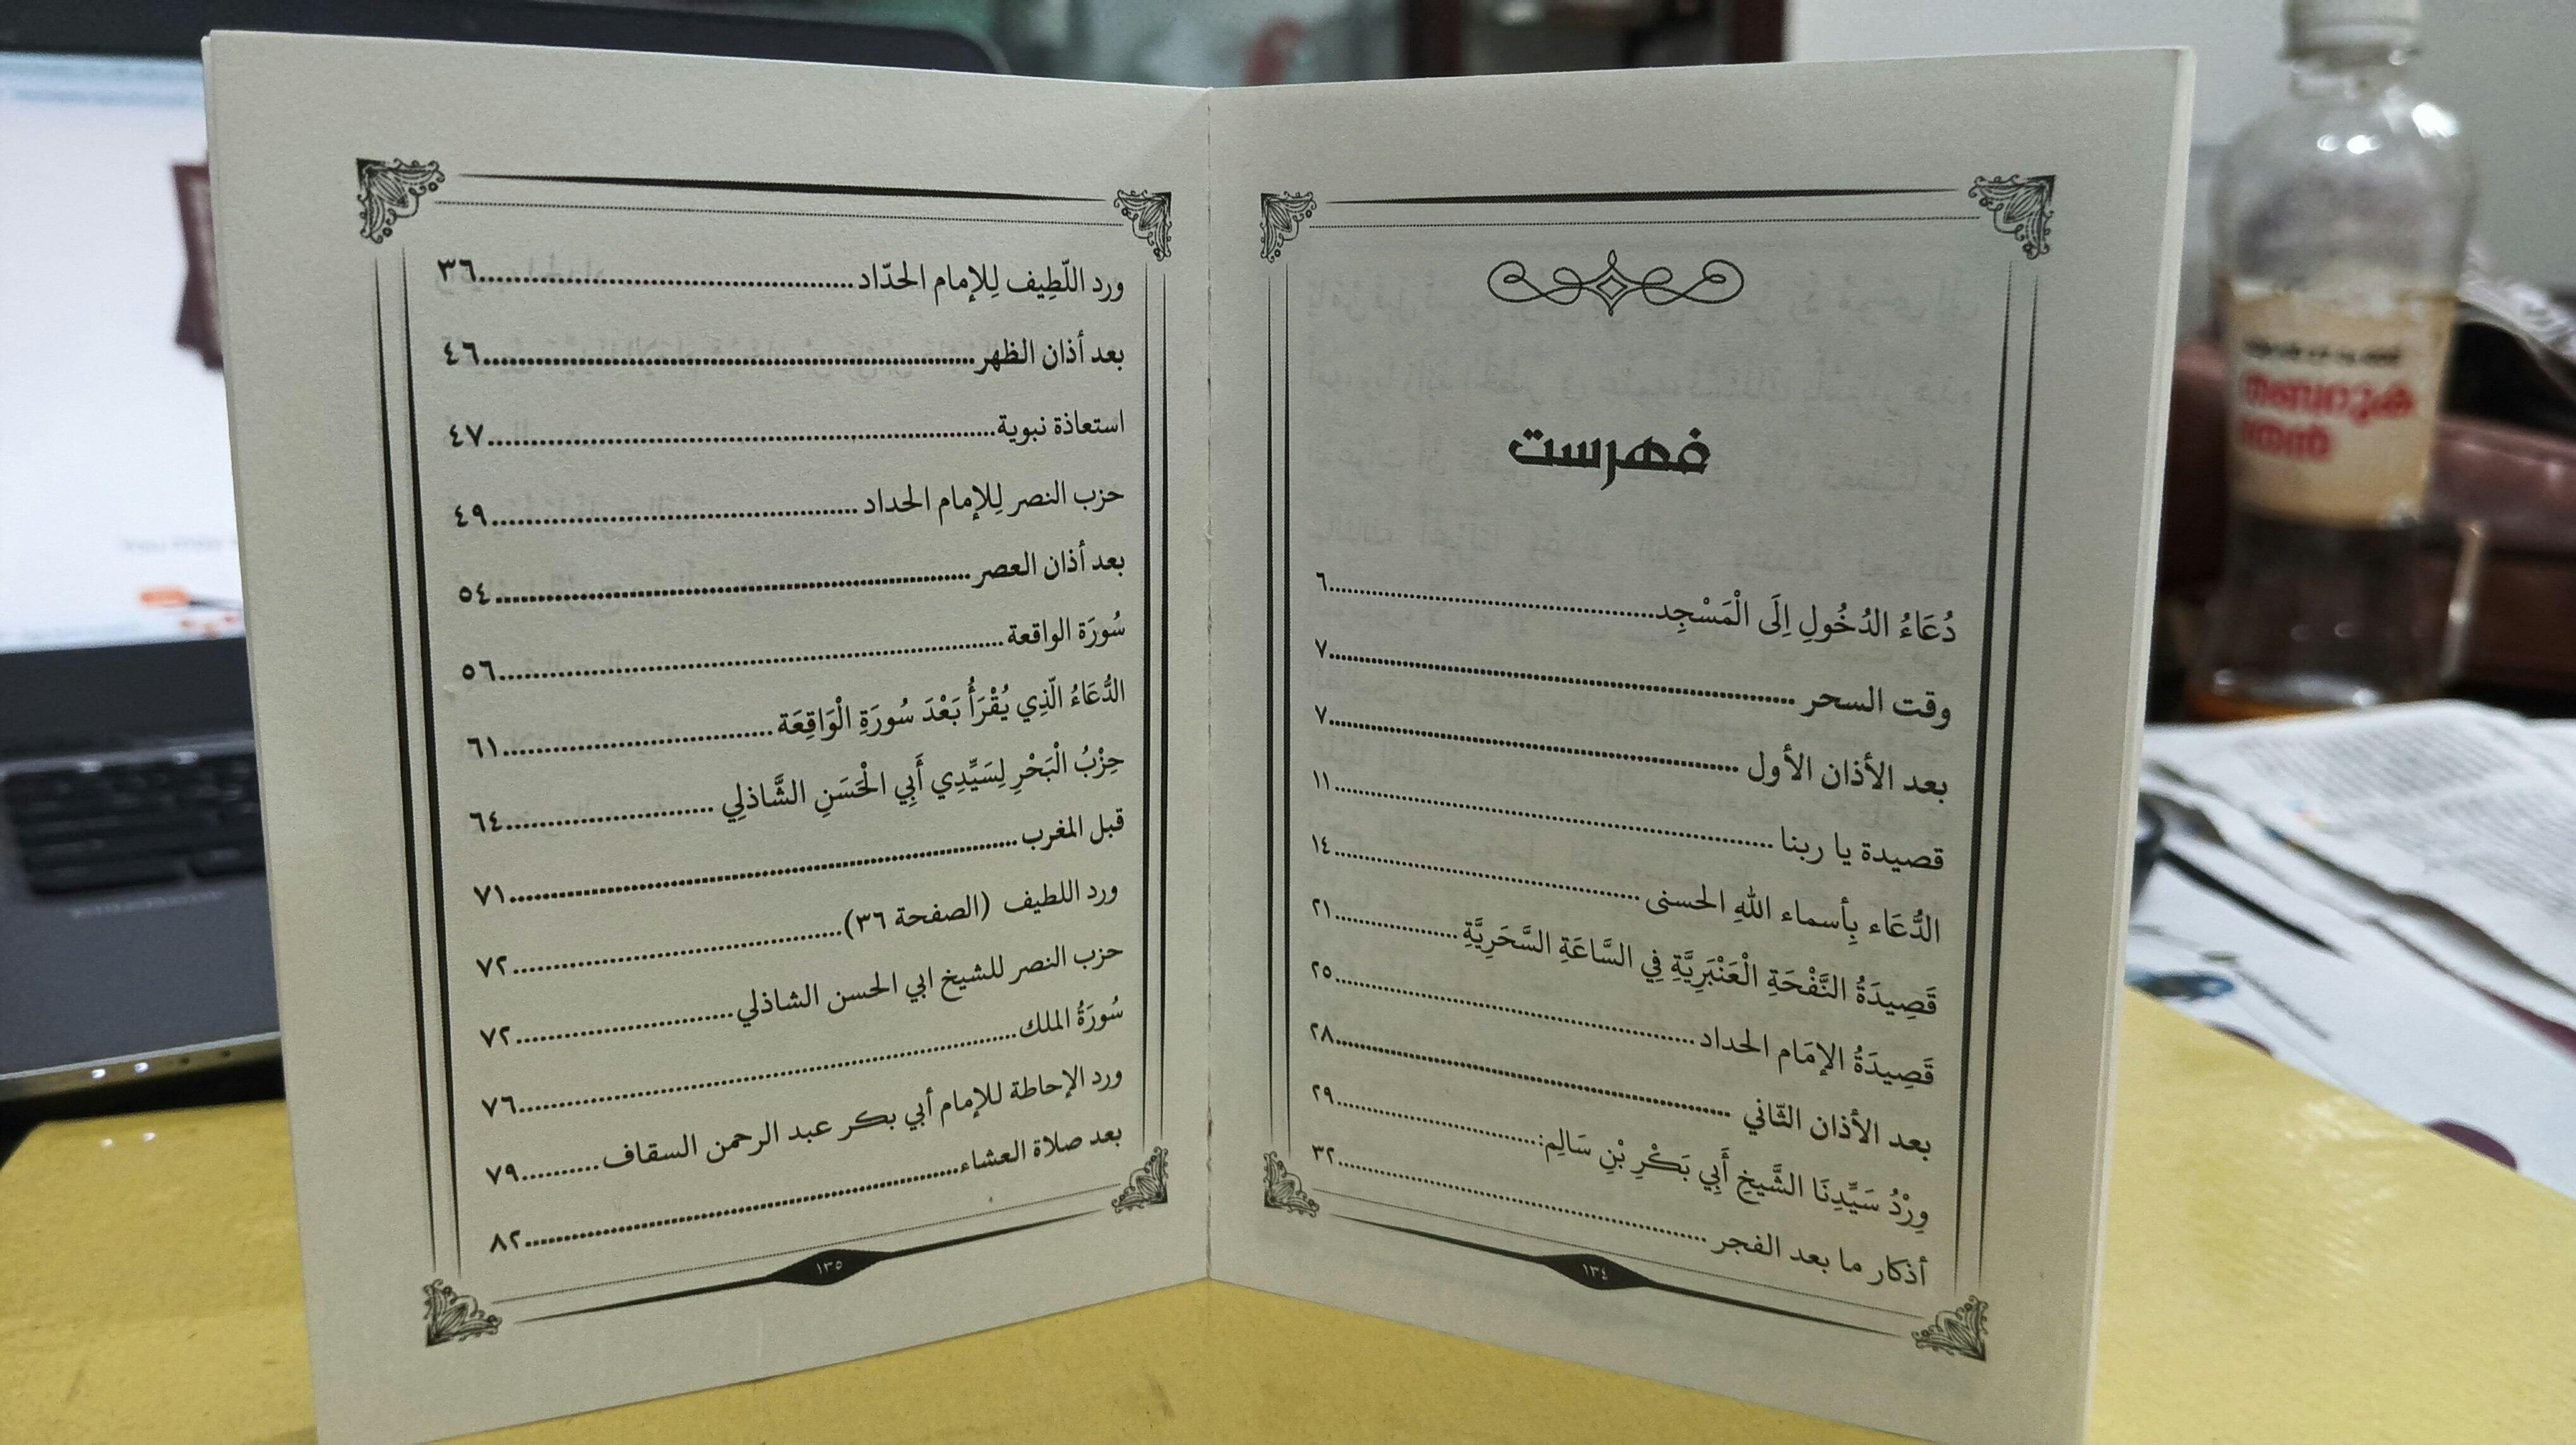 فهرست
دُعَاءُ الدُخُولِ إِلَى الْمَسْجِد..........٦
وقت السحر..........٧
بعد الأذان الأول..........٧
قصيدة يا ربنا..........١١
الدُّعَاء بِأسماء اللهِ الحسنى..........١٤
قَصِيدَةُ النَّفْحَةِ الْعَنْبَرِيَّةِ فِي السَّاعَةِ السَّحَرِيَّةِ..........٢١
قَصِيدَةُ الإمَام الحداد..........٢٥
بعد الأذان الثّاني..........٢٨
وِرْدُ سَيِّدِنَا الشَّيخِ أَبِي بَكْرِ بْنِ سَالِم:..........٢٩
أذكار ما بعد الفجر..........٣٢
١٣٤
ورد اللّطِيف لِلإمام الحدّاد..........٣٦
بعد أذان الظهر..........٤٦
استعاذة نبوية..........٤٧
حزب النصر لِلإمام الحداد..........٤٩
بعد أذان العصر..........٥٤
سُورَة الواقعة..........٥٦
الدُّعَاءُ الّذِي يُقْرَأُ بَعْدَ سُورَةِ الْوَاقِعَة..........٦١
حِزْبُ الْبَحْرِ لِسَيِّدِي أَبِي الْحَسَنِ الشَّاذلِي..........٦٤
قبل المغرب..........٧١
ورد اللطيف (الصفحة ٣٦)..........٧٢
حزب النصر للشيخ ابي الحسن الشاذلي..........٧٢
سُورَةُ الملك..........٧٦
ورد الإحاطة للإمام أبي بكر عبد الرحمن السقاف..........٧٩
بعد صلاة العشاء..........٨٢
١٣٥